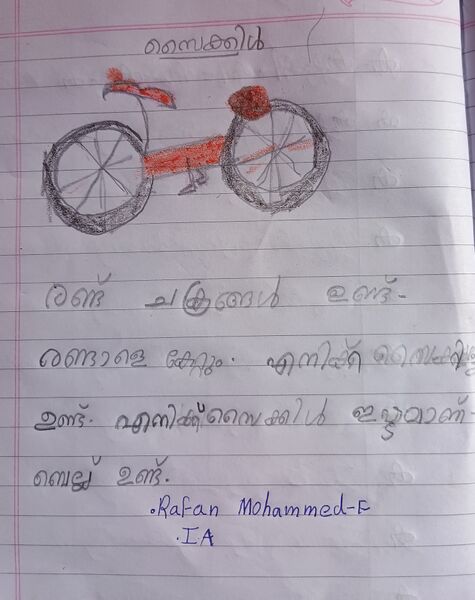 സൈക്കിൾ
രണ്ട് ചക്രങ്ങൾ ഉണ്ട്.
രണ്ടാളെ കേറ്റും. എനിക്ക് സൈക്കിള്
ഉണ്ട്. എനിക്ക് സൈക്കിൾ ഇഷ്ടമാണ്.
ബെല്ല് ഉണ്ട്.
.Rafan Mohammed-F
.IA